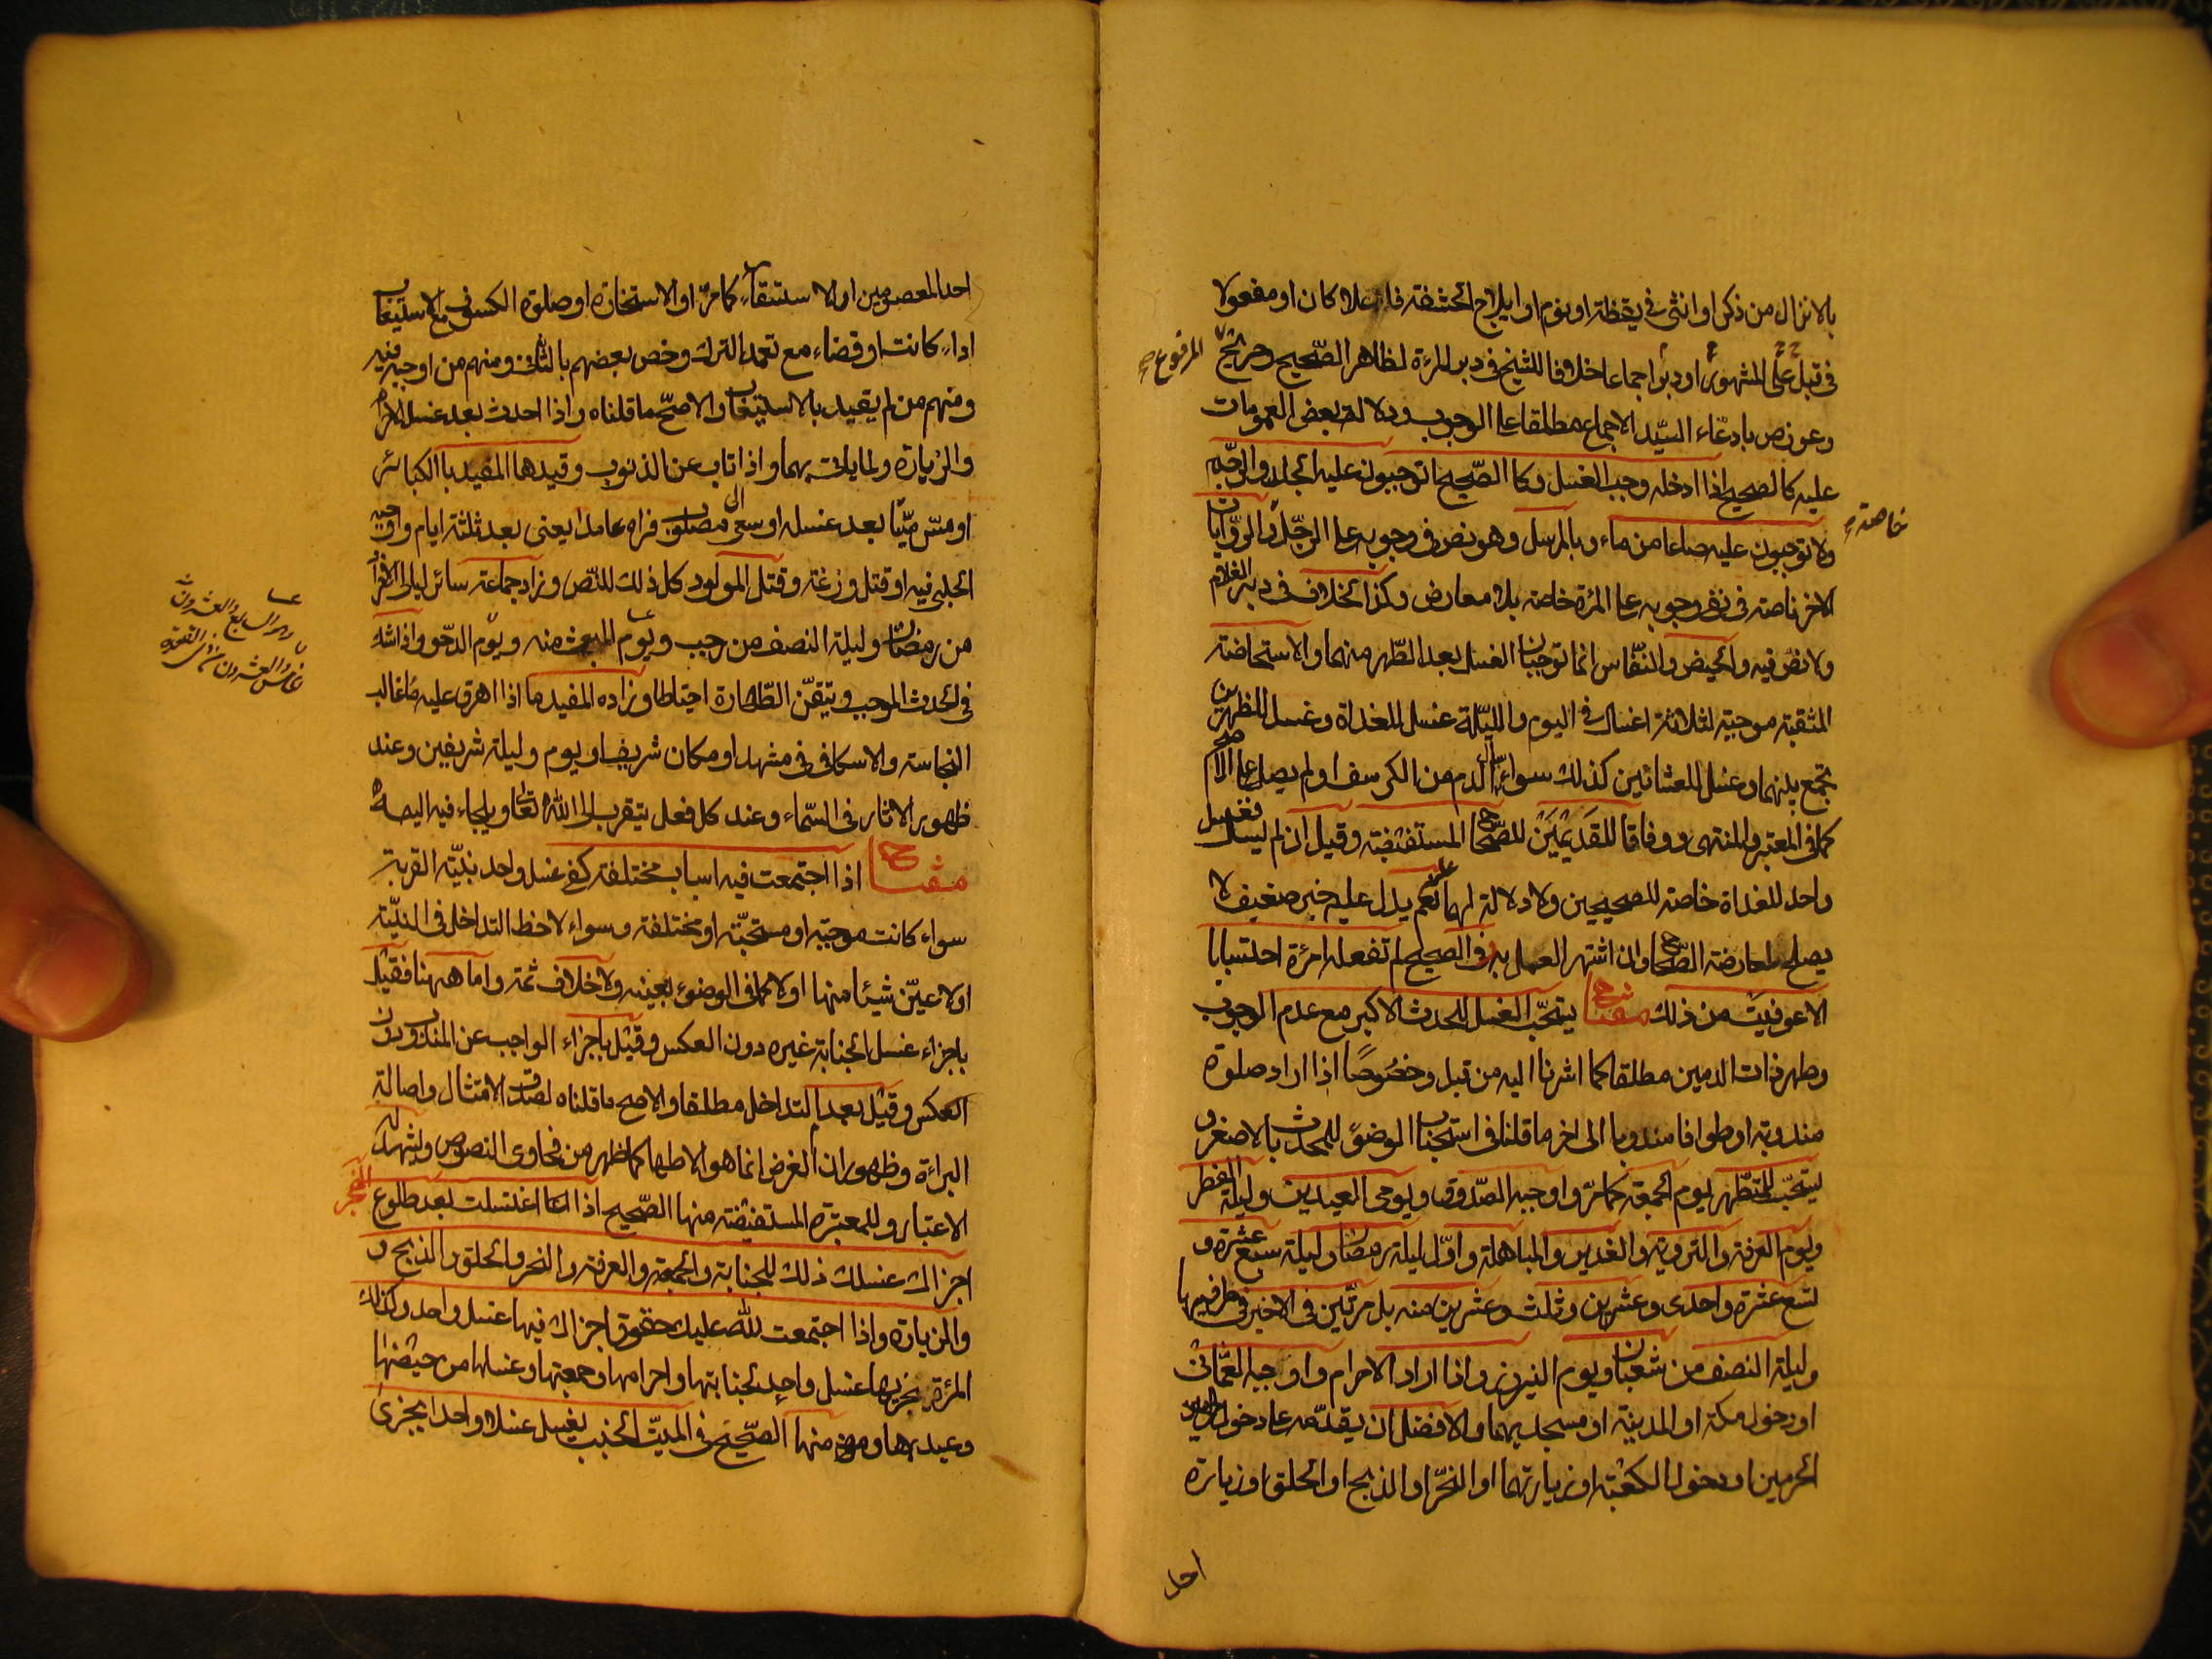 بالانزال من ذكر او انثى في يقظة او نوم او ايلاج الحشفة فاعلا كان او مفعولا
في قبل على المشهور او دبر اجماعا خلافا للشيخ في دبر المرءة لظاهر الصحيح وصريح
المرفوع
وعورض بادعاء السيد الاجماع مطلقا على الوجوب ودلالة بعض العمومات
عليه كالصحيح اذا ادخله وجب الغسل وكالصحيح اتوجبون عليه الجلد والرجم
ولا توجبون عليه صاعا من ماء وبالمرسل وهو نص في وجوبه على الرجل والروايات
خاصة
الاخر ناصة في نفي وجوبه على المرءة خاصة بلا معارض وكذا الخلاف في دبر الغلام
ولا نص فيه والحيض والنفاس انما توجبان الغسل بعد الطهر منهما والاستحاضة
المثقبة موجبة لثلاثة اغسال في اليوم والليلة غسل للغداة وغسل للظهرين
تجمع بينهما وغسل للعشائين كذلك سواء سال الدم من الكرسف او لم يصل على الاصح
كما في المعتبر والمنتهى ووفاقا للقديمين للصحاح المستفيضة وقيل ان لم يسل فغسل
واحد للغداة خاصة للصحيحين ولا دلالة لهما عليه نعم يدل عليه خبر ضعيف لا
يصلح لمعارضة الصحاح وان اشتهر العمل به وفي الصحيح لم تفعله امرءة احتسابا
الا عوفيت من ذلك مفتاح يستحب الغسل للحدث الاكبر مع عدم الوجوب
وطهر ذات الدمين مطلقا كما اشرنا اليه من قبل وخصوصا اذا اراد صلوة
مندوبة او طوافا مندوبا الى اخر ما قلنا في استحباب الوضوء للمحدث بالاصغر و
يستحب للمتطهر يوم الجمعة كما مر واوجبه الصدوق ويومى العيدين وليلة الفطر
ويوم العرفة والتروية والغدير والمباهلة واول ليلة رمضان وليلة سبع عشرة و
تسع عشرة واحدى وعشرين وثلث وعشرين منه بل مرتين في الاخير في طرفيها
وليلة النصف من شعبان ويوم النيروز واذا اراد الاحرام واوجبه العماني
او دخول مكة او المدينة او مسجديهما والافضل ان يقدمه على دخول
الحرمين او دخول الكعبة او زيارتهما او النحر او الذبح او الحلق او زيارة
احد
احد المعصومين او الاستسقاء كما مر او الاستخارة او صلوة الكسوف مع الاستيعاب
اداء كانت او قضاء مع تعمد الترك وخص بعضهم بالثاني ومنهم من اوجبه فيه
ومنهم من لم يقيد بالاستيعاب والاصح ما قلناه واذا احدث بعد غسل الاحرام
والزيارة ولما يات بهما واذا تاب عن الذنوب وقيدها المفيد بالكبائر
او مس ميتا بعد غسله او سعى الى مصلوب فراه عامدا يعني بعد ثلثة ايام واوجبه
الحلبي فيه او قتل وزغة وقتل المولود كل ذلك للنص وزاد جماعة سائر ليالي الافراد
من رمضان وليلة النصف من رجب ويوم المبعث منه ويوم الدحو واذا شك
السابع والعشرون
خامس والعشرون من ذي القعدة
في الحدث الموجب وتيقن الطهارة احتياطا وزاده المفيد ما اذا اهرق عليه ماء غالب
النجاسة والاسكافي في مشهد او مكان شريف او يوم وليلة شريفين وعند
ظهور الاثار في السماء وعند كل فعل يتقرب الى الله تعالى ويلجاء فيه اليه
مفتاح اذا اجتمعت فيه اسباب مختلفة كفى غسل واحد بنية القربة
سواء كانت موجبة او مستحبة او مختلفة وسواء لاحظ التداخل في النية
او لا عين شيئا منها او لا كما في الوضوء بعينه ولا خلاف ثمة واما ههنا فقيل
باجزاء غسل الجنابة غيره دون العكس وقيل باجزاء الواجب عن المندوب دون
العكس وقيل بعدم التداخل مطلقا والاصح ما قلناه لصدق الامتثال واصالة
البراءة وظهور ان الغرض انما هو الاطهار كما ظهر من فحاوى النصوص ويشهد له
الاعتبار وللمعتبرة المستفيضة منها الصحيح اذا اغتسلت بعد طلوع الفجر
اجزاك غسلك ذلك للجنابة والجمعة والعرفة والنحر والحلق والذبح و
والزيارة واذا اجتمعت لله عليك حقوق اجزاك فيها غسل واحد وكذلك
المرءة يجزيها غسل واحد لجنابتها واحرامها وجمعتها وغسلها من حيضها
وعيدها ومنها الصحيح في الميت الجنب يغسل غسلا واحدا يجزى